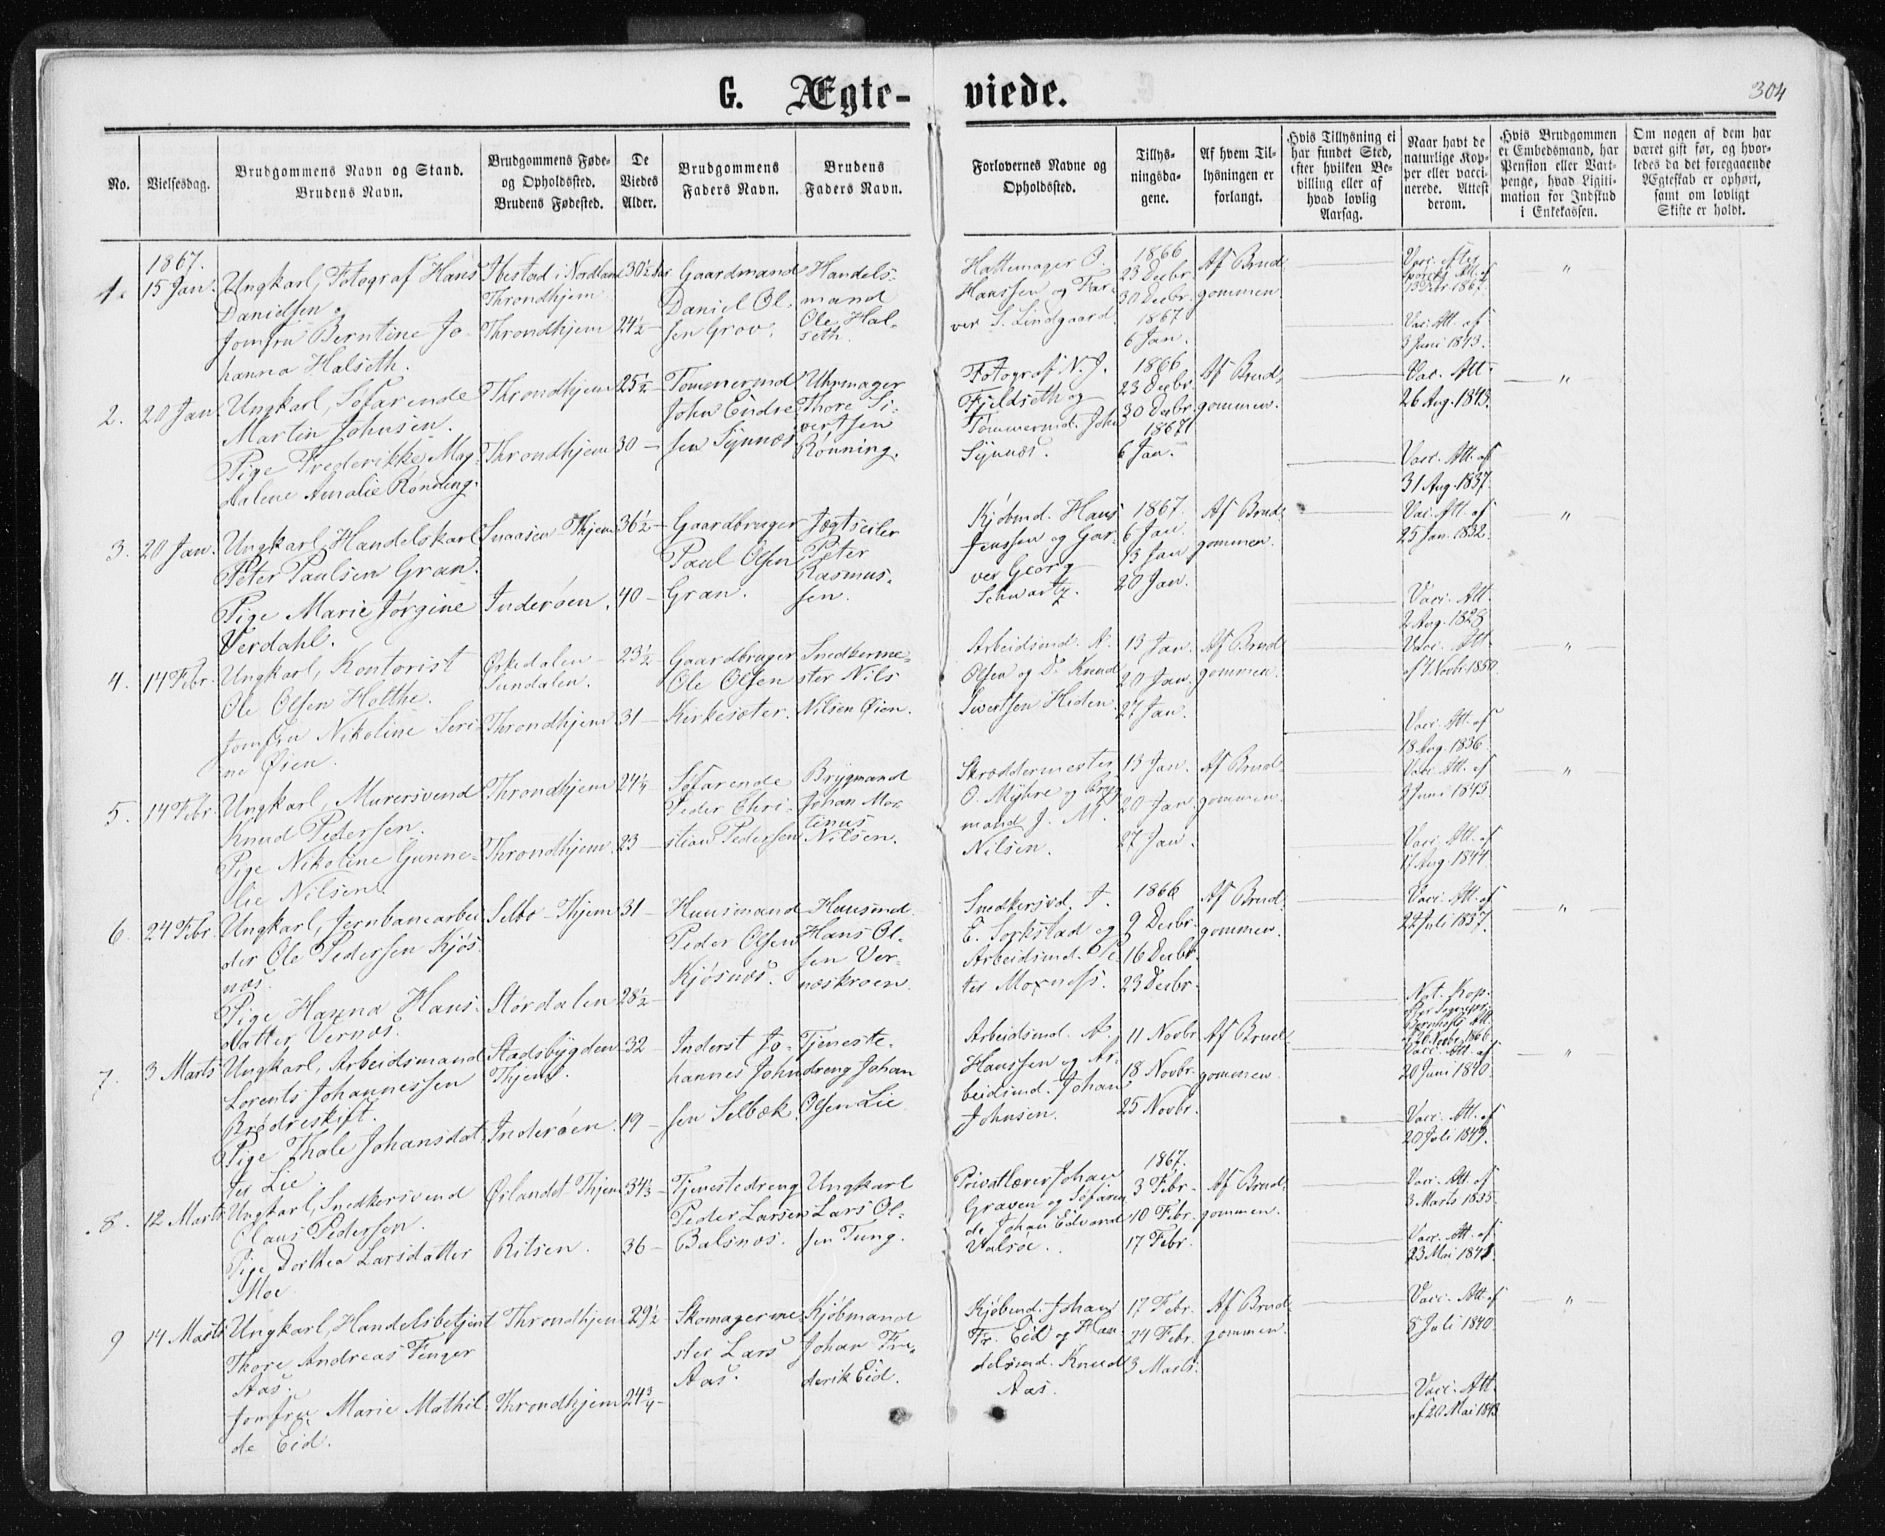 304
G. Ægte- viede.
No.
Vielsesdag.
Brudgommens Navn og Stand.
Brudens Navn.
Brudgommens Føde-
og Opholdssted.
Brudens Fødested.
De
Viedes
Alder.
Brudgommens
Faders Navn.
Brudens
Faders Navn.
Forlovernes Navne og
Opholdssted.
Tillys-
ningsda-
gene.
Af hvem Til-
lysningen er
forlangt.
Hvis Tillysning ei
har fundet Sted,
efter hvilken Be-
villing eller af
hvad lovlig
Aarsag.
Naar havt de
naturlige Kop-
per eller vacci-
nerede. Attest
derom.
Hvis Brudgommen
er Embedsmand, har
Pension eller Vart-
penge, hvad Ligiti-
mation for Indskud
i Enkekassen.
Om nogen af dem har
været gift før, og hvor-
ledes da det foregaaende
Ægteskab er ophørt,
samt om lovligt
Skifte er holdt.
1867.
1. 15 Jan.
Ungkarl, Fotograf Hans
Danielsen.
Jomfru Berntine Jo-
hanna Halseth.
Ibestad i Nordland
Throndhjem
Throndhjem
30½ Aar
24½ —
Gaardmand
Daniel Ol-
sen Grov.
Handels-
mand
Ole Hal-
seth.
Hattemager O.
Hanssen og Far-
ver S. Lindgaard.
1866
23 Decbr.
30 Decbr.
1867
6 Jan.
Af Brud-
gommen.
Vacc. Att. af
3 Juni 1843.
"
2. 20 Jan.
Ungkarl, Søfarende
Martin Johnsen.
Pige Frederikke Mag-
dalene Amalie Rønning.
Throndhjem
Throndhjem
25½ —
30 —
Tømmermd
John Endre-
sen Synnæs
Uhrmager
Thore Si-
vertsen
Rønning.
Fotograf N. J.
Fjeldseth og
Tømmermd. John
Synnæs.
1866
23 Decbr.
30 Decbr.
1867
6 Jan.
Af Brud-
gommen.
Vac. Att.
26 Aug. 1843.
Vacc. Att. af
31 Aug. 1837.
"
3. 20 Jan.
Ungkarl Handelskarl
Peter Paulsen Gran.
Pige Marie Jørgine
Verdahl.
Snaasen Thjem
Inderøen.
36½ —
40 —
Gaardbruger
Paul Olsen
Gran.
Jægtseiler
Peter
Rasmus-
sen.
Kjøbmd. Hans
Jenssen og Gar-
ver Georg
Schwartz.
1867.
6 Jan.
13 Jan
20 Jan.
Af Brud-
gommen.
Vac. Att. af
25 Jan. 1832.
Vacc. Att.
2 Aug. 1828
"
4. 14 Febr.
Ungkarl, Kontorist
Ole Olsen Holthe.
Jomfru Nikoline Seri-
ne Øien.
Ørkedalen
Sundalen.
Throndhjem
23½
31 —
Gaardbruger
Ole Olsen
Kirkesæter.
Snedkerme-
ster Nils
Nilsen Øien.
Arbeidsmd. A.
Olsen og Do Knud
Sivertsen Heden.
13 Jan.
20 Jan.
27 Jan.
Af Brud-
gommen.
Vacc. Att.
af 7 Novbr. 1850.
Vacc. Att. af
18 Aug. 1836.
"
5. 14 Febr.
Ungkarl, Murersvend
Knud Pedersen.
Pige Nikoline Gunne-
lie Nilsen
Throndhjem
Throndhjem
24¼
23 —
Søfarende
Peder Chri-
stian Pedersen
Brygmand
Johan Mor-
tinus
Nilsen.
Skræddermester
O. Myhre og Bryg-
mand J. M.
Nilsen.
13 Jan.
20 Jan.
27 Jan.
Af Brud-
gommen.
Vacc. Att. af
3 Juni 1843.
Vacc. Att. af
17 Aug. 1844.
"
6. 24 Febr.
Ungkarl, Jernbanearbei-
der Ole Pedersen Kjøs-
næs.
Pige Hanna Hans-
datter Vernæs.
Selbo Thjem
Størdalen
31 —
28½ —
Huusmand
Peder Olsen
Kjøsnæs.
Huusmd.
Hans Ol-
sen Ver-
næskroen.
Snedkersvd. J.
E. Sorkstad og
Arbeidsmd. Pe-
ter Moxness.
1866
9 Decbr.
16 Decbr.
23 Decbr.
Af Brud-
gommen.
Vacc. Att. af
24 Juli 1837.
Nat. Kop.
"
7. 3 Marts
Ungkarl, Arbeidsmand
Lorents Johannessen
Brødreskift.
Pige Thale Johansdat-
ter Lie.
Stadsbygden
Thjem.
Inderøen.
32 —
19 —
Inderst Jo-
hannes John-
sen Selbæk.
Tjeneste-
dreng Johan
Olsen Lie
Arbeidsmd. A.
Hanssen og Ar-
beidsmd. Johan
Johnsen.
11 Novbr.
18 Novbr.
25 Novbr.
Af Brud-
gommen
Vacc. Att. af
20 Juni 1840.
Vacc. Att. af
20 Juli 1849.
"
8. 12 Marts
Ungkarl, Snedkersvend
Claus Pedersen.
Pige Dorthea Larsdatter
Moe
Ørlandet Thjem
Ritsen.
34⅓ —
36 —
Tjenestedreng
Peder Larsen
Balsnæs.
Ungkarl
Lars Ol-
sen Tung.
Privatlærer Johan
Graven og Søfaren-
de Johan Edvard
Valsøe.
1867.
3 Febr.
10 Febr.
17 Febr.
Af Brud-
gommen.
Vacc. Att. af
3 Marts 1835.
Vacc. Att. af
23 Mai 1843.
9 14 Marts
Ungkarl, Handelsbetjent
Thore Andreas Fenger
Aas.
Jomfru Marie Mathil-
de Eid.
Throndhjem
Throndhjem
29½ —
24¾ —
Skomagerme-
ster Lars
Aas.
Kjøbmand
Johan Fre-
derik Eid.
Kjøbmd. Johan
Fr. Eid og Han-
delsmd. Knud
Aas.
17 Febr.
24 Febr.
3 Marts.
Af Brud-
gommen.
Vacc. Att. af
8 Juli 1840
Vacc. Att.
af 20 Mai 1843
"